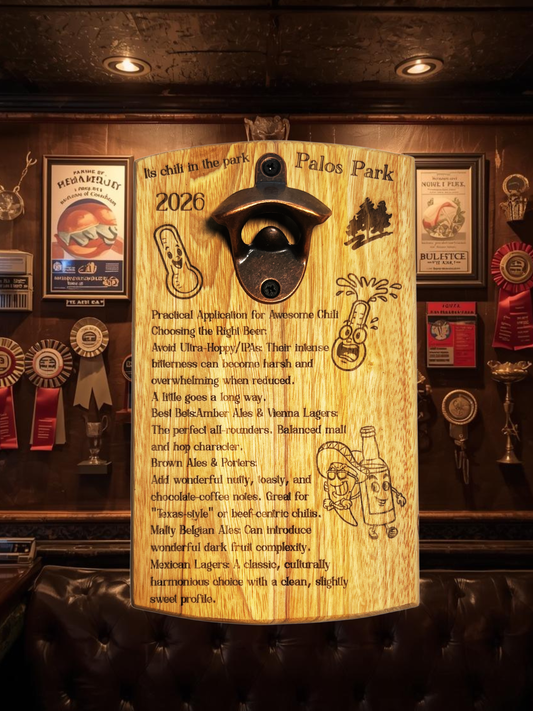 Its chili in the park
Palos Park
2026
Practical Application for Awesome Chili
Choosing the Right Beer:
Avoid Ultra-Hoppy/IPAs: Their intense
bitterness can become harsh and
overwhelming when reduced.
A little goes a long way.
Best Bets:Amber Ales & Vienna Lagers:
The perfect all-rounders. Balanced malt
and hop character.
Brown Ales & Porters:
Add wonderful nutty, toasty, and
chocolate-coffee notes. Great for
"Texas-style" or beef-centric chilis.
Malty Belgian Ales: Can introduce
wonderful dark fruit complexity.
Mexican Lagers: A classic, culturally
harmonious choice with a clean, slightly
sweet profile.